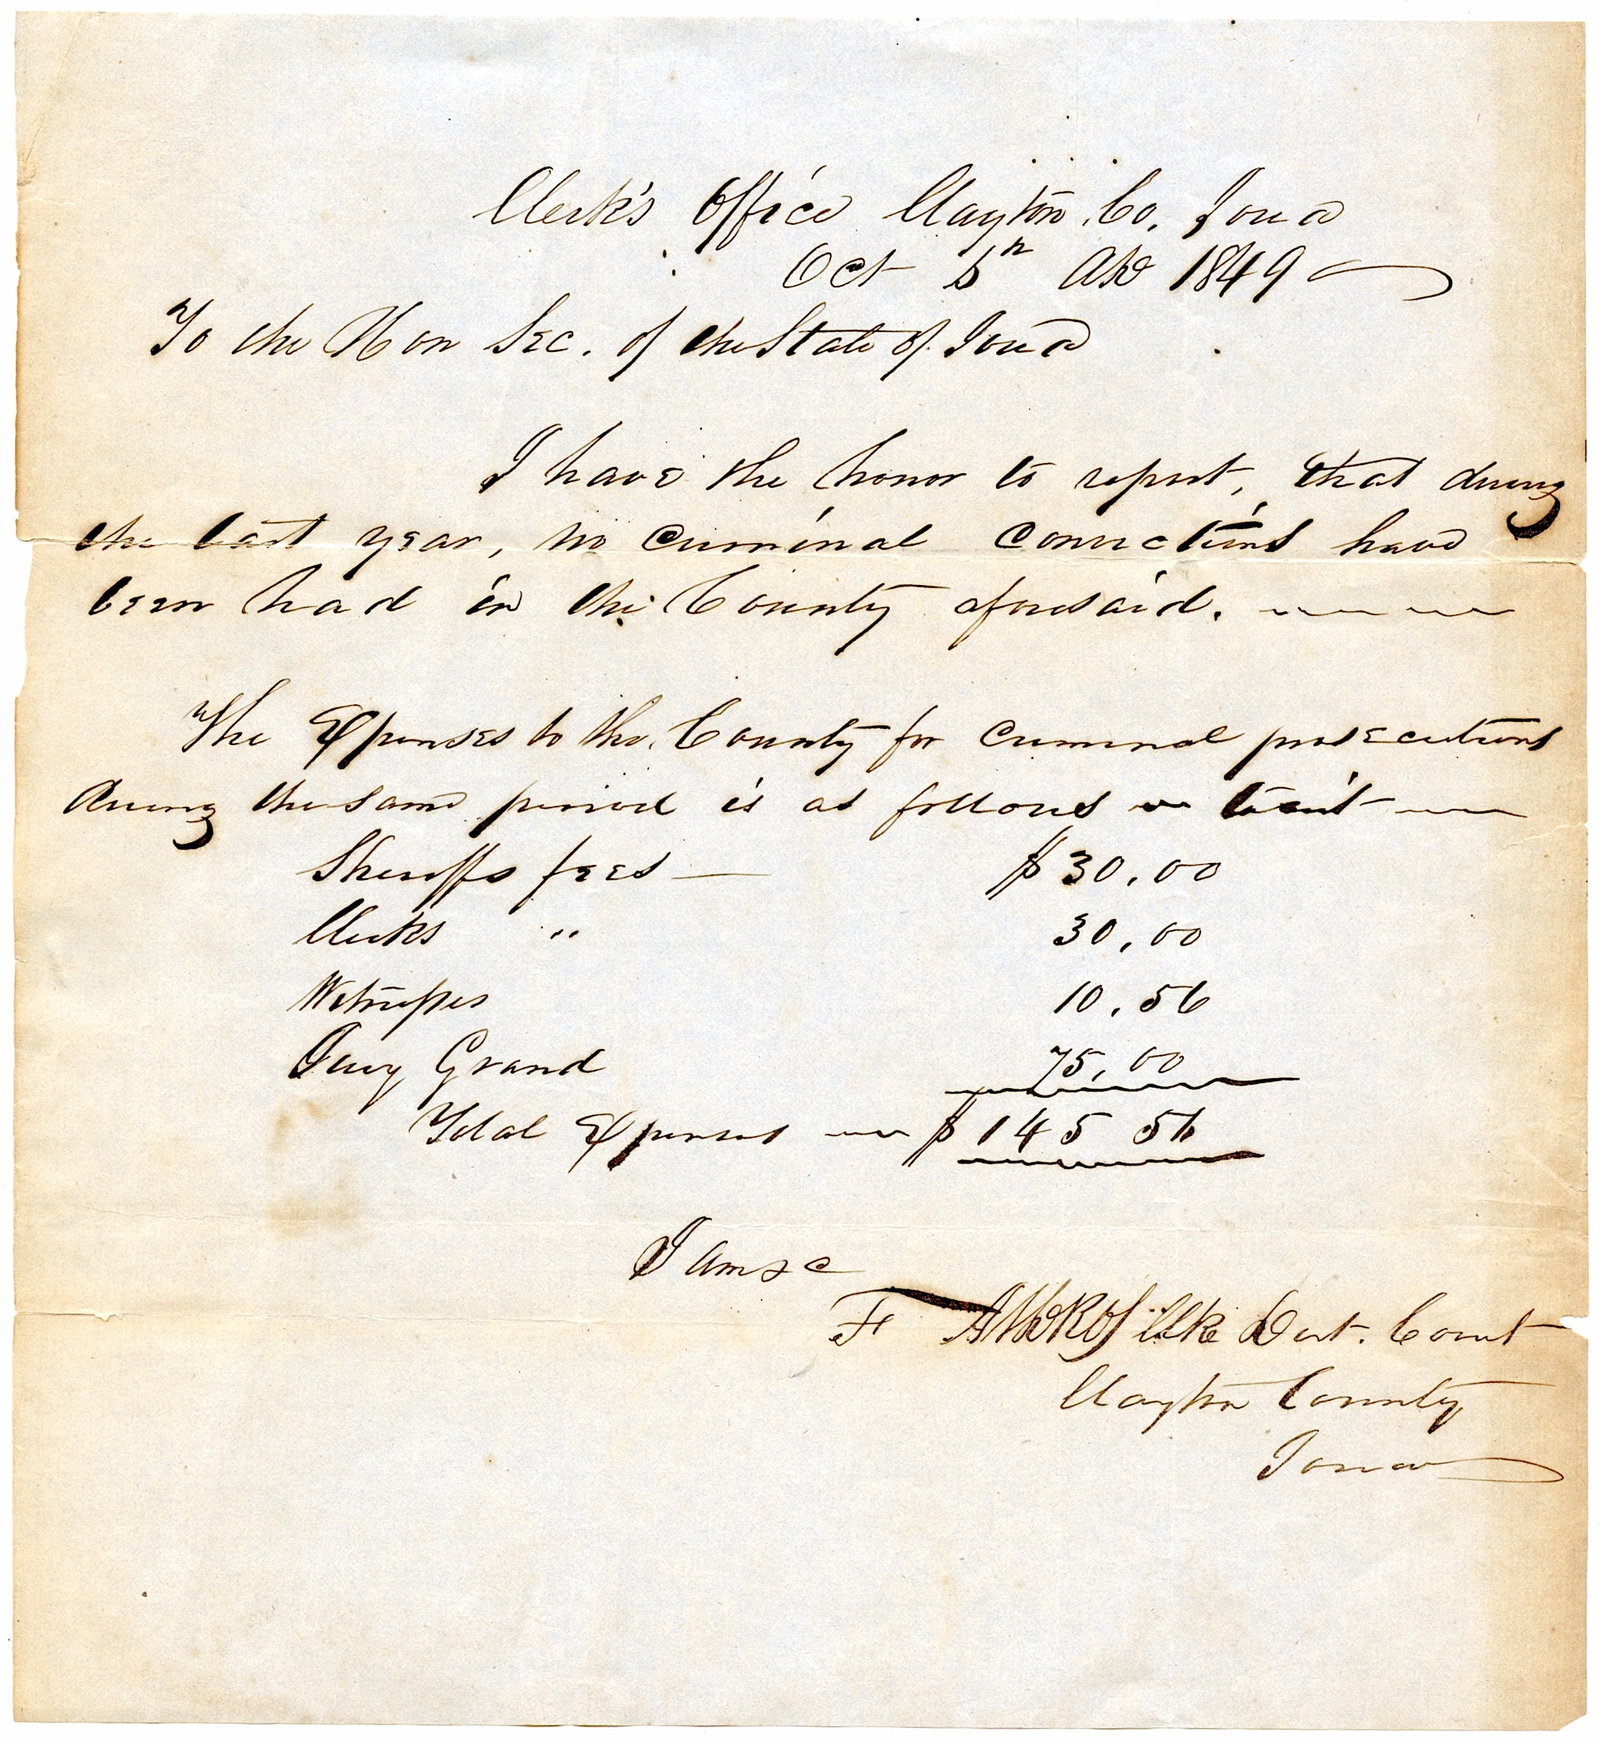 Clerk's Office Clayton Co. Iowa
Oct 5th AD 1849
To the Hon Sec. of the State of Iowa
I have the honor to report, that during
the last year, no criminal convictions have
been had in the County aforesaid.
The Expenses to the County for criminal prosecutions
during the same period is as follows to wit
Sheriffs fees — $30.00
Clerks " 30.00
Witnesses 10.56
Jury Grand 75.00
Total Expenses $145 56
I am &c
Clk Dist. Court
Clayton County
Iowa